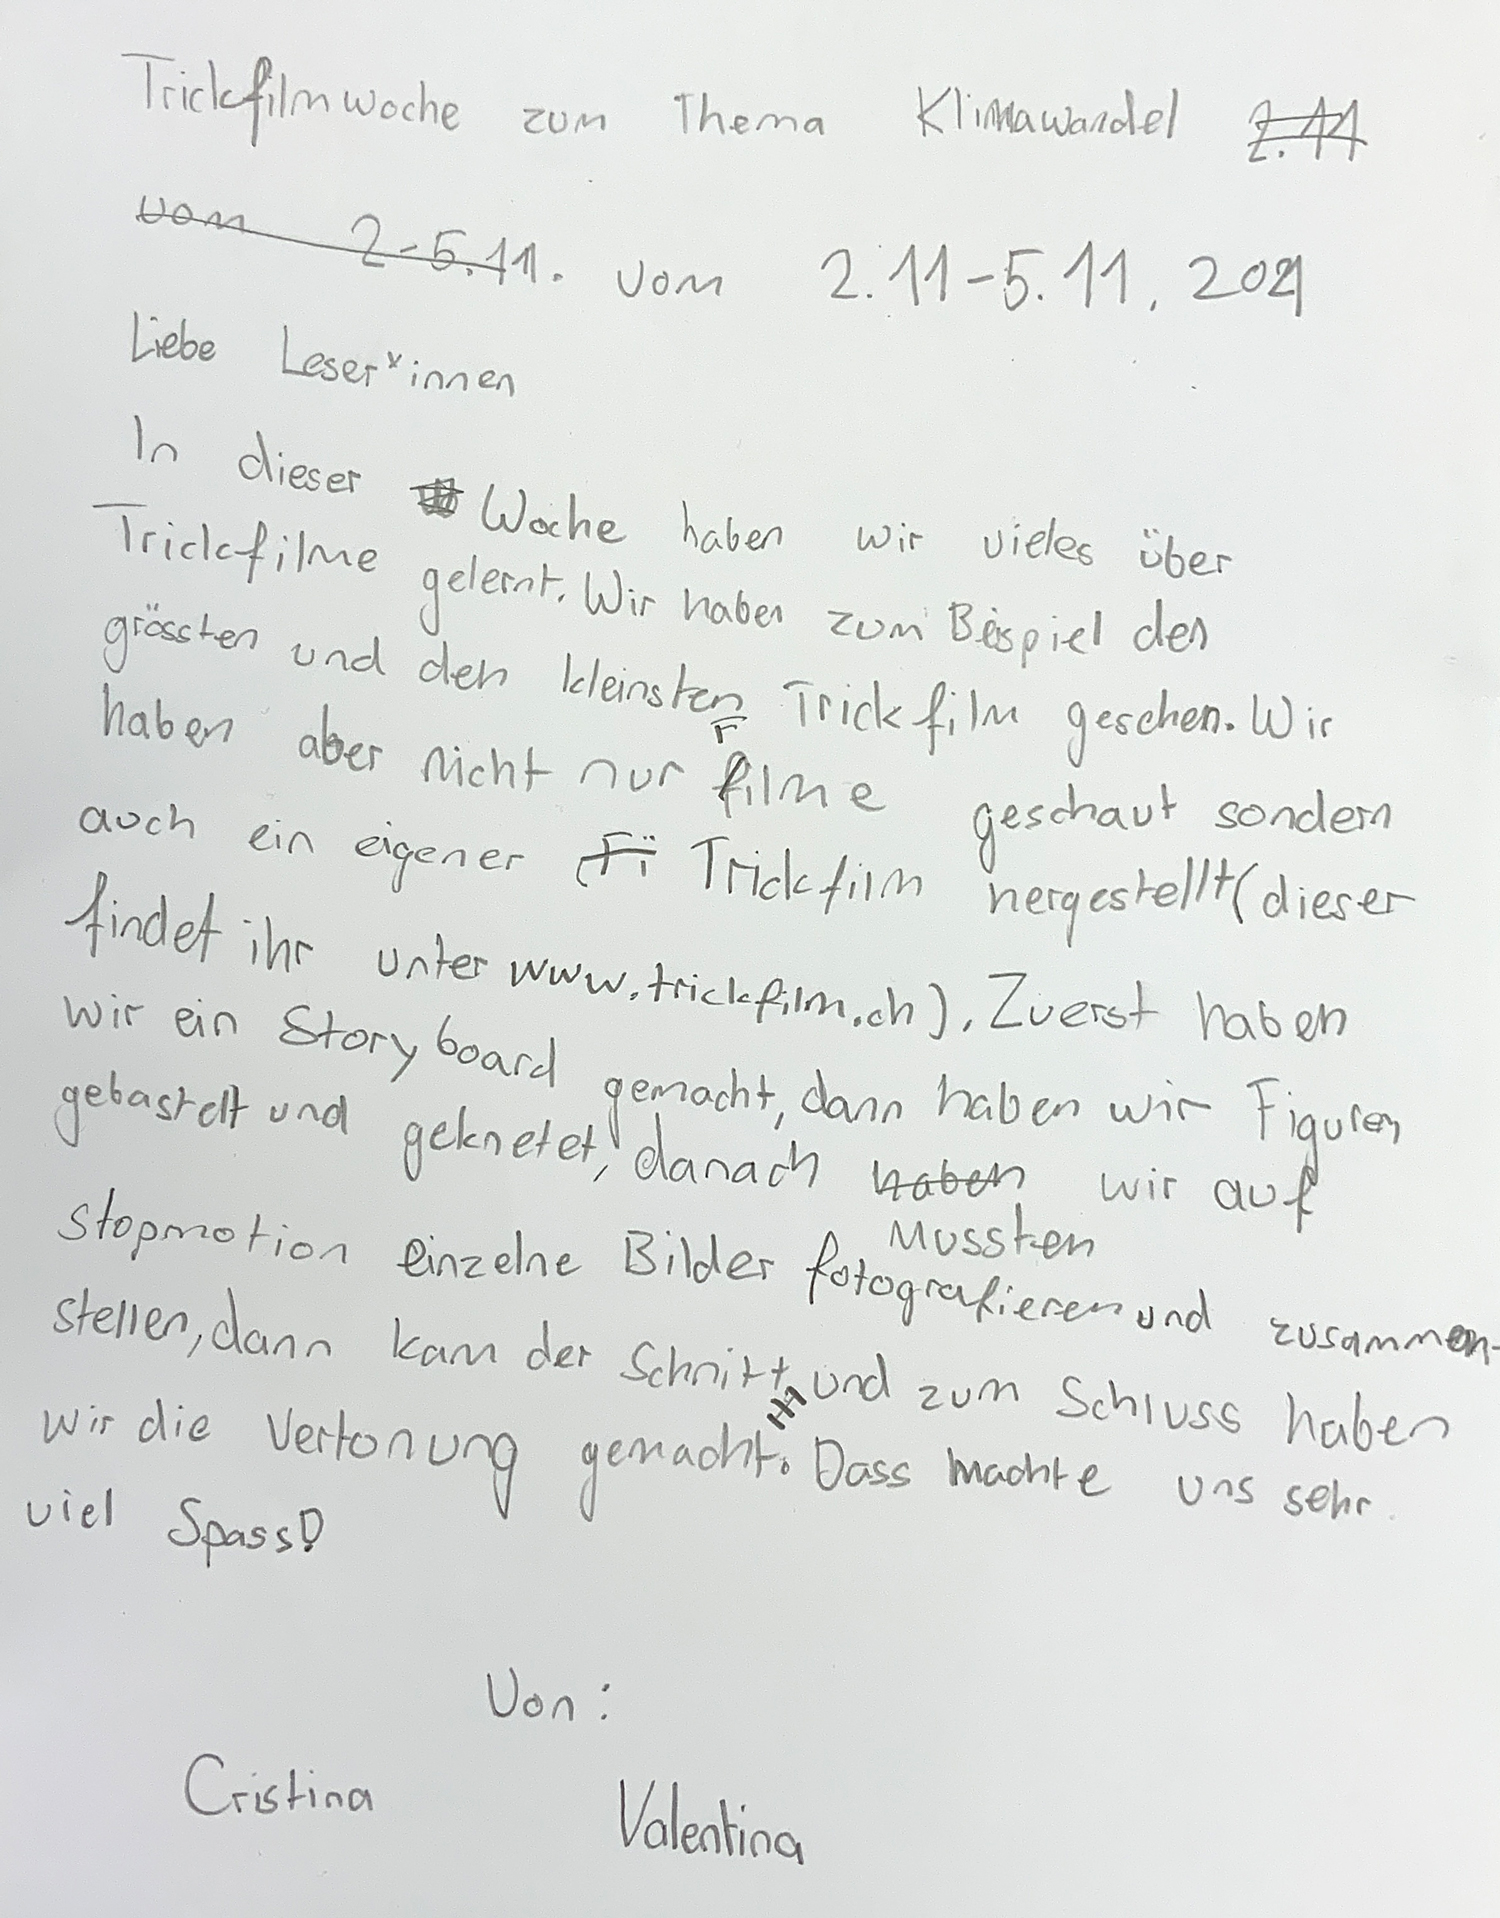 Trickfilmwoche zum Thema Klimawandel 2.11
vom 2-5.11. vom 2.11-5.11.2021
Liebe Leser*innen
In dieser Woche haben wir vieles über
Trickfilme gelernt. Wir haben zum Beispiel den
grössten und den kleinsten Trickfilm gesehen. Wir
haben aber nicht nur Filme geschaut sondern
auch ein eigener Fi Trickfilm hergestellt (dieser
findet ihr unter www.trickfilm.ch). Zuerst haben
wir ein Storyboard gemacht, dann haben wir Figuren
gebastelt und geknetet, danach haben wir auf
mussten
stopmotion einzelne Bilder fotografieren und zusammen-
stellen, dann kam der Schnitt und zum Schluss haben
wir die Vertonung gemacht. Dass machte uns sehr
viel Spass!
Von:
Cristina Valentina